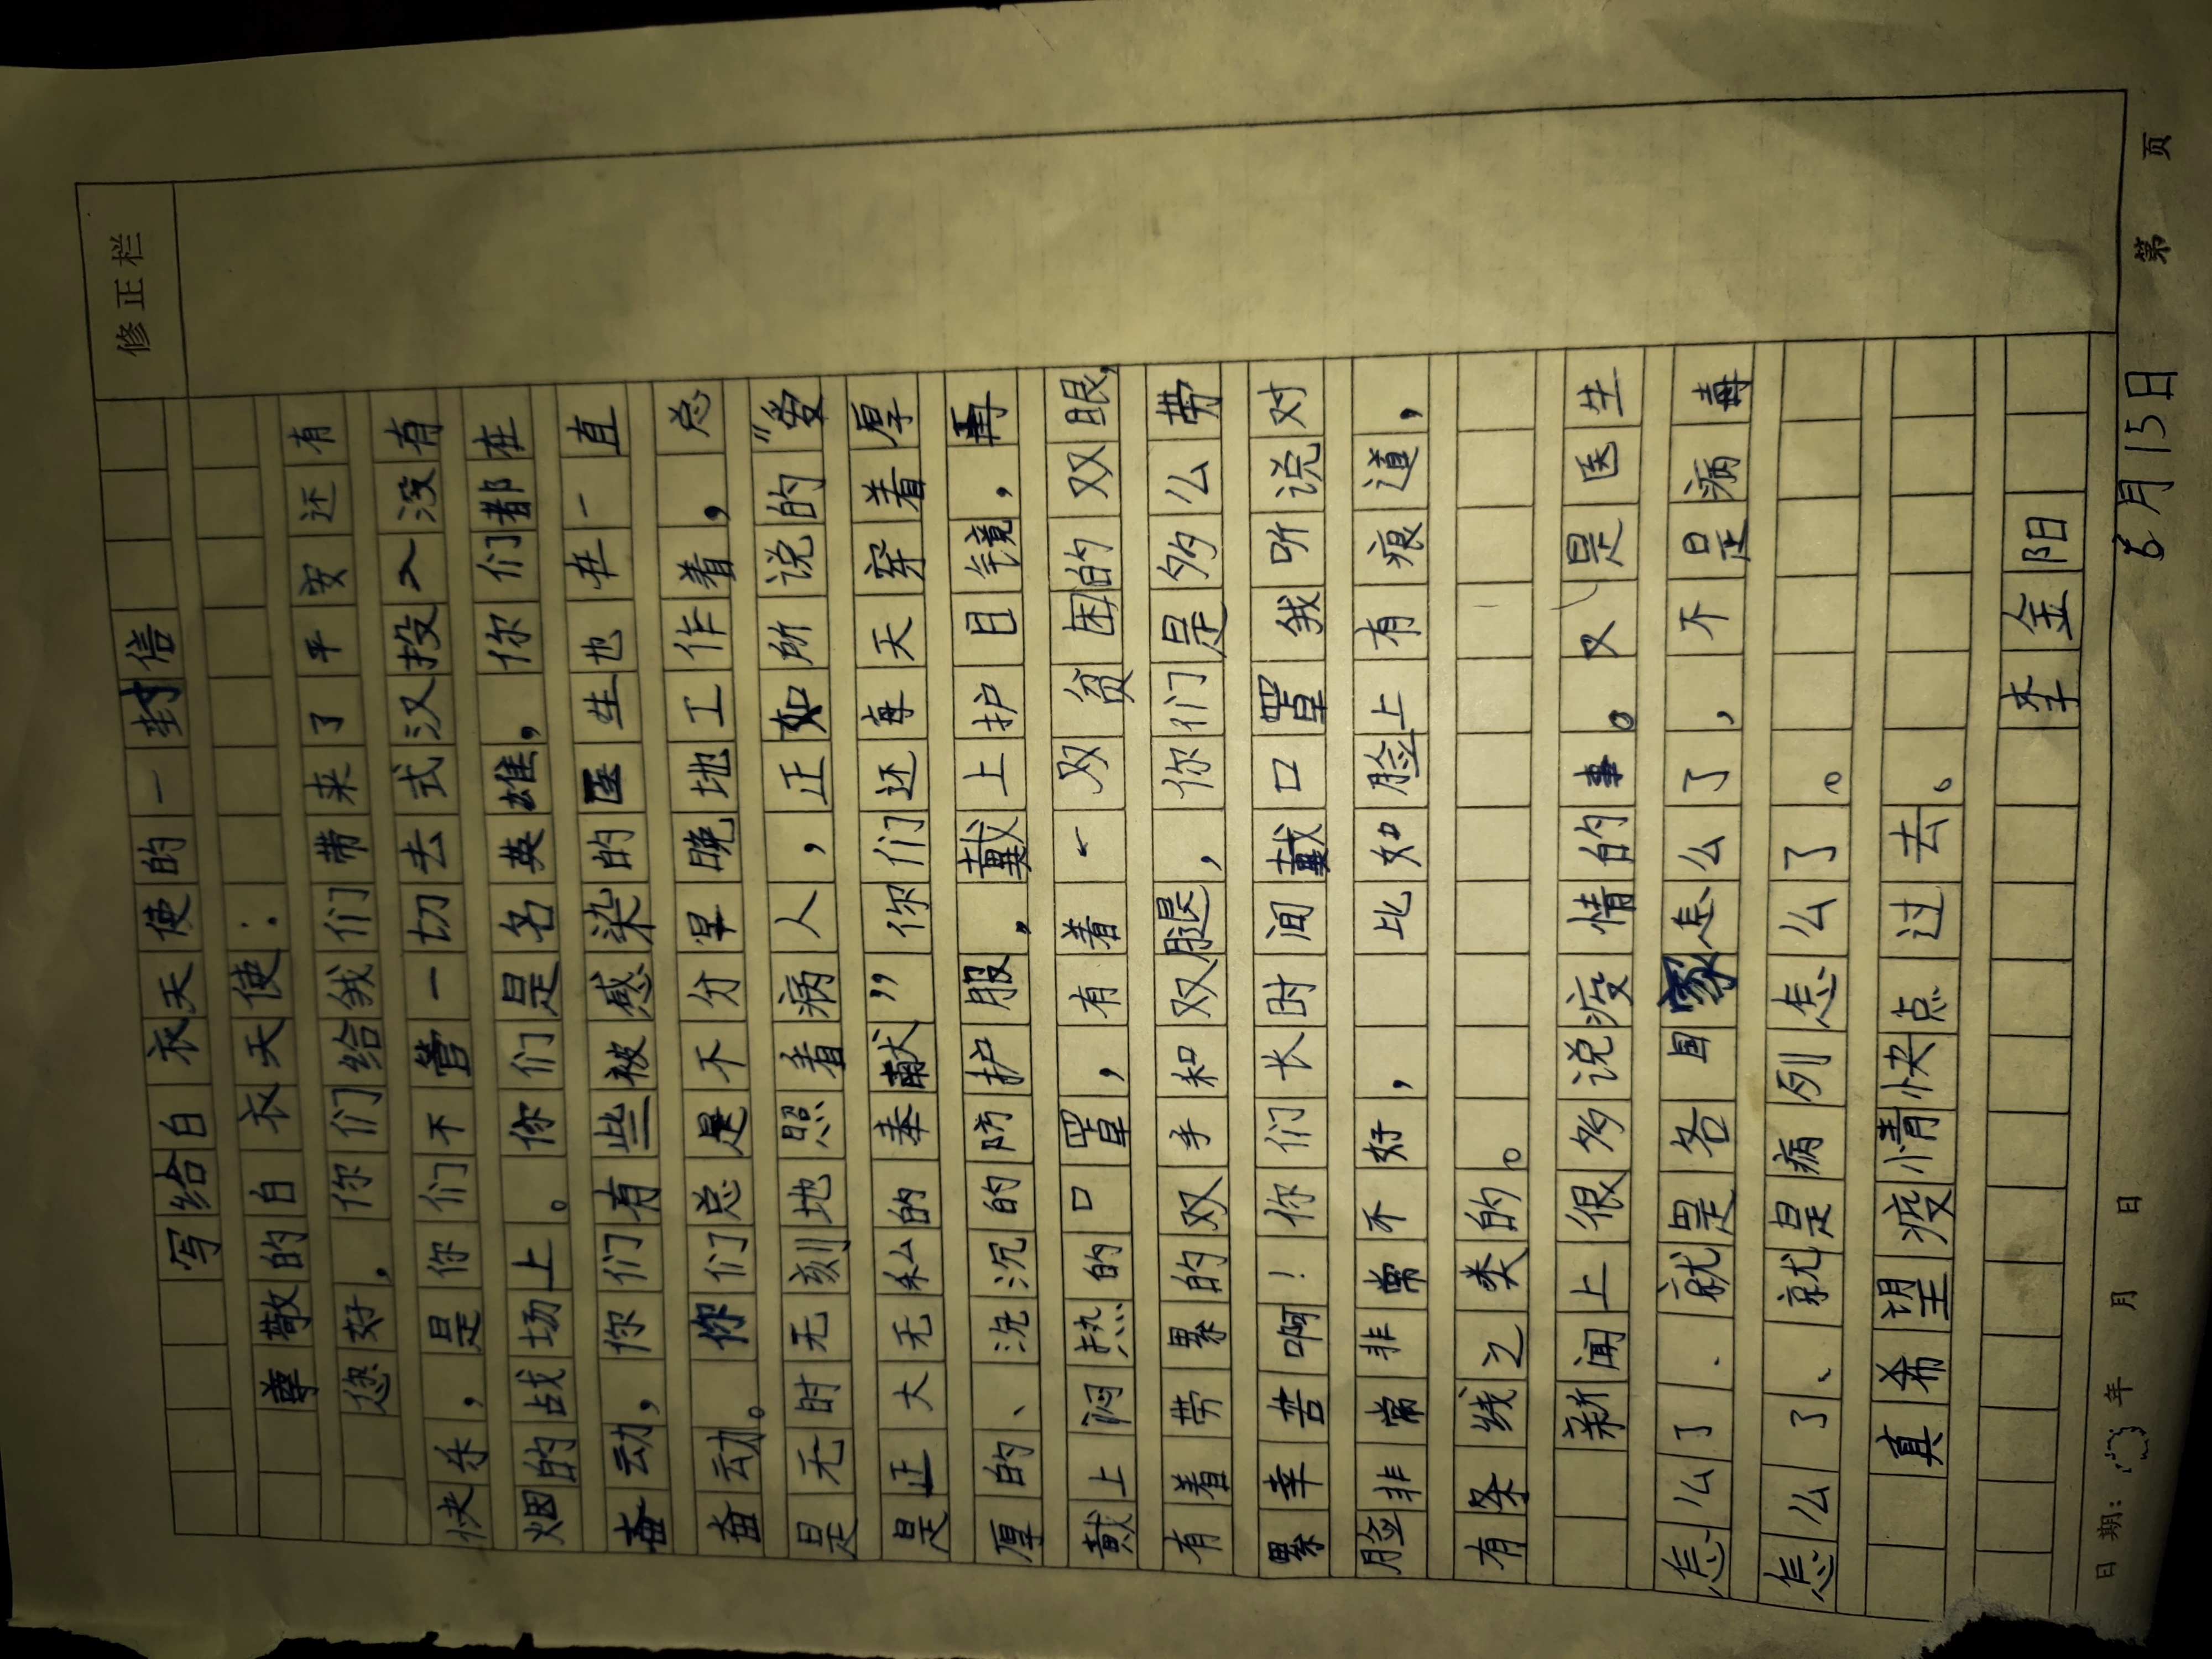 修正栏
写给白衣天使的一封信
尊敬的白衣天使：
您好，你们给我们带来了平安还有
快乐，是你们不管一切去式汉投入没有
烟的战场上。你们是名英雄，你们都在
奋动，你们有些被感染的医生也在一直
奋动。你们总是不分早晚地工作着，总
是无时无刻地照看病人，正如所说的“爱
是正大无私的奉献”你们还每天穿着厚
厚的、沉沉的防护服，戴上护目镜，再
戴上闷热的口罩，有着一双贫困的双眼，
有着劳累的双手和双腿，你们是多么劳
累幸苦啊！你们长时间戴口罩我听说对
脸非常非常不好，比如脸上有痕道，
有条线之类的。
新闻上很多说疫情的事。又是医生
怎么了、就是各国家怎么了，不是病毒
怎么了、就是病列怎么了。
真希望疫情快点过去。
李金阳
日期： 年 月 日 6月15日 第 页